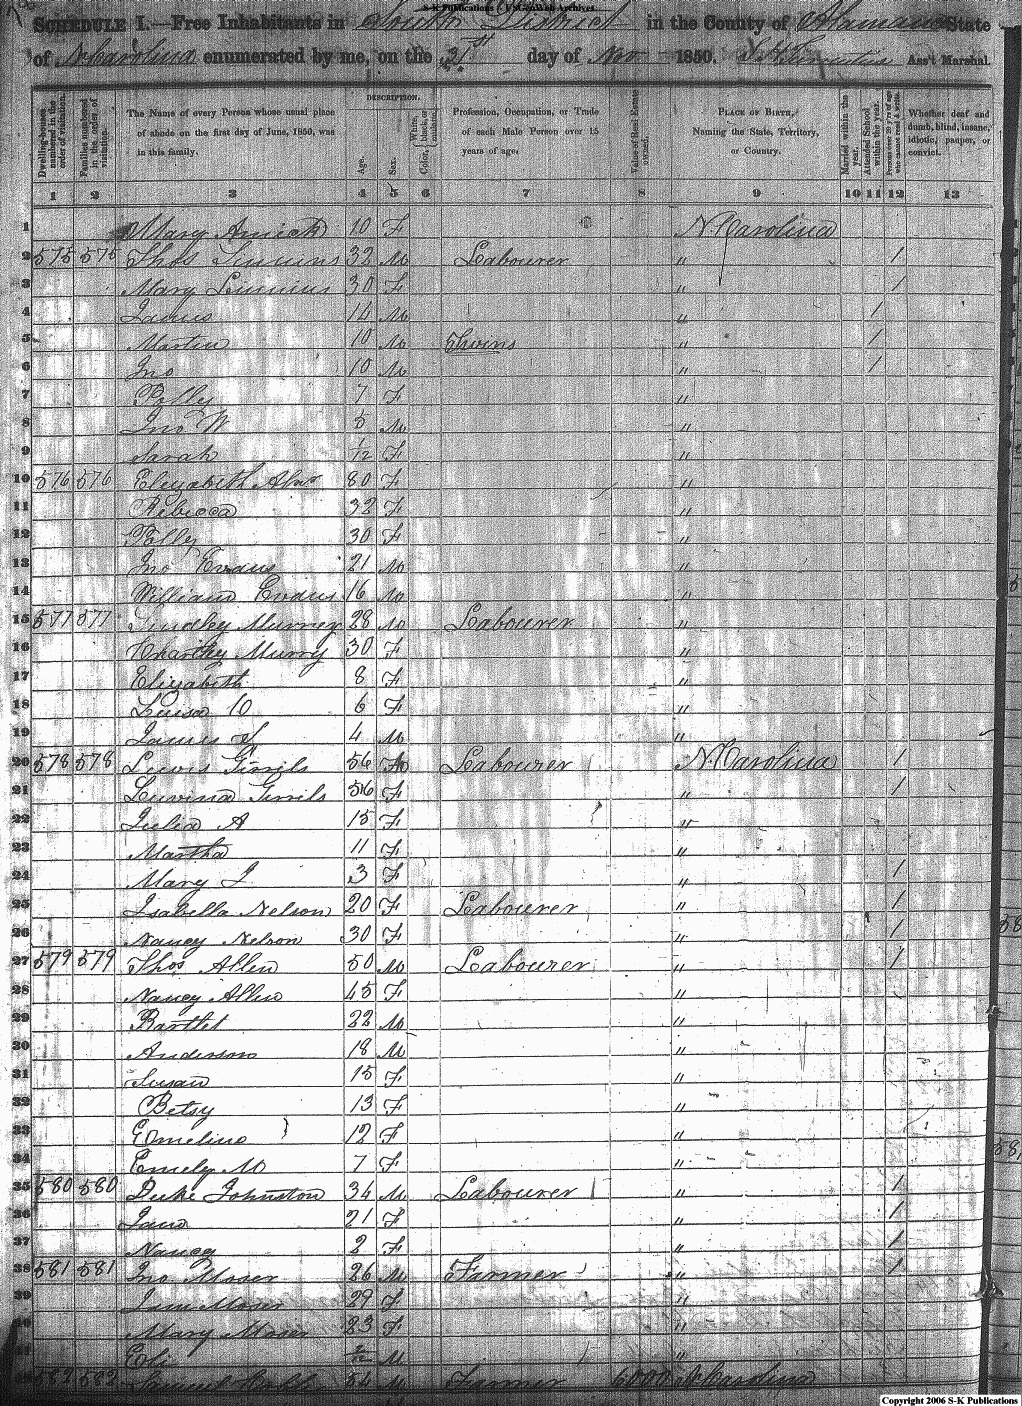 S-K Publications - USGenWeb Archives
SCHEDULE I.—Free Inhabitants in South District in the County of Alamance State
of N Carolina enumerated by me, on the day of Nov 1850. Ass't Marshal.
Dwelling-houses numbered in the order of visitation.
Families numbered in the order of visitation.
The Name of every Person whose usual place of abode on the first day of June, 1850, was in this family.
DESCRIPTION.
Age.
Sex.
Color, White, black, or mulatto.
Profession, Occupation, or Trade of each Male Person over 15 years of age.
Value of Real Estate owned.
PLACE OF BIRTH, Naming the State, Territory, or Country.
Married within the year.
Attended School within the year.
Persons over 20 y'rs of age who cannot read & write.
Whether deaf and dumb, blind, insane, idiotic, pauper, or convict.
1 2 3 4 5 6 7 8 9 10 11 12 13
1 Mary Amick 10 F N. Carolina
2 575 575 Thos 32 M Labourer " 1
3 Mary 30 F " 1
4 James 14 M " 1
5 Martin 10 M Twins " 1
6 Jno 10 M " 1
7 Polly 7 F "
8 Jno W 5 M "
9 Sarah 1/12 F "
10 576 576 Elizabeth 80 F "
11 Rebecca 32 F "
12 Polly 30 F "
13 Jno Evans 21 M "
14 William Evans 16 M "
15 577 577 Lindley Murrey 28 M Labourer "
16 Charithy Murry 30 F "
17 Elizabeth 8 F "
18 Luisa 6 F "
19 James 4 M "
20 578 578 Lewis 56 M Labourer N. Carolina 1
21 Luvina 56 F " 1
22 Julia A 15 F "
23 Martha 11 F "
24 Mary J 3 F " 1
25 Isabella Nelson 20 F Labourer " 1
26 Nancy Nelson 30 F " 1
27 579 579 Thos Allen 50 M Labourer " 1
28 Nancy Allen 45 F "
29 Bartlet 22 M "
30 Anderson 18 M "
31 Susan 15 F "
32 Betsy 13 F "
33 Emeline 12 F "
34 Emely M 7 F "
35 580 580 Duke Johnston 34 M Labourer " 1
36 Jane 21 F " 1
37 Nancy 2 F " 1
38 581 581 Jno Moser 26 M Farmer " 1
39 Moser 29 F "
40 Mary Moser 23 F "
41 Eli M "
42 582 582 Samuel 54 M Farmer 6000 N Carolina
Copyright 2006 S-K Publications